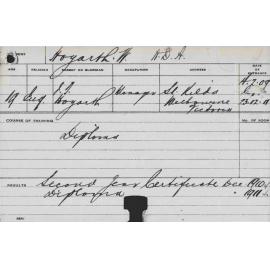 Hogarth. W. N.D.A.
AGE RELIGION PARENT OR GUARDIAN OCCUPATION ADDRESS DATE OF
19 Hogarth Manager St. Kilda
Melbourne 23.12.11
Victoria
COURSE OF TRAINING NO. OF ROOM
Diploma
RESULTS Second Year Certificate Dec 1910
Diploma 1911